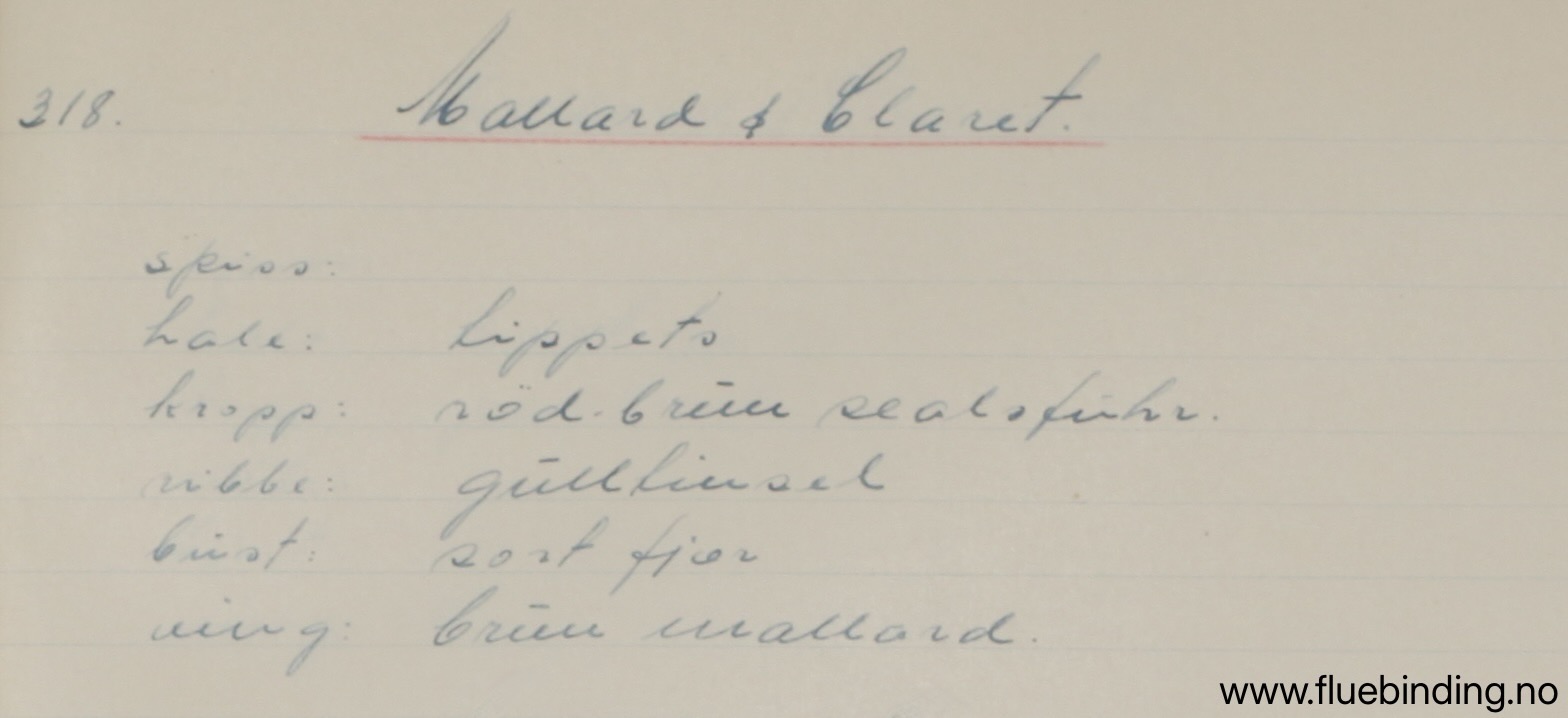 318. Mallard & Claret.
spiss:
hale: tippets
kropp: röd-brun sealsfuhr.
ribbe: gulltinsel
bust: sort fjær
ving: brun mallard.
www.fluebinding.no